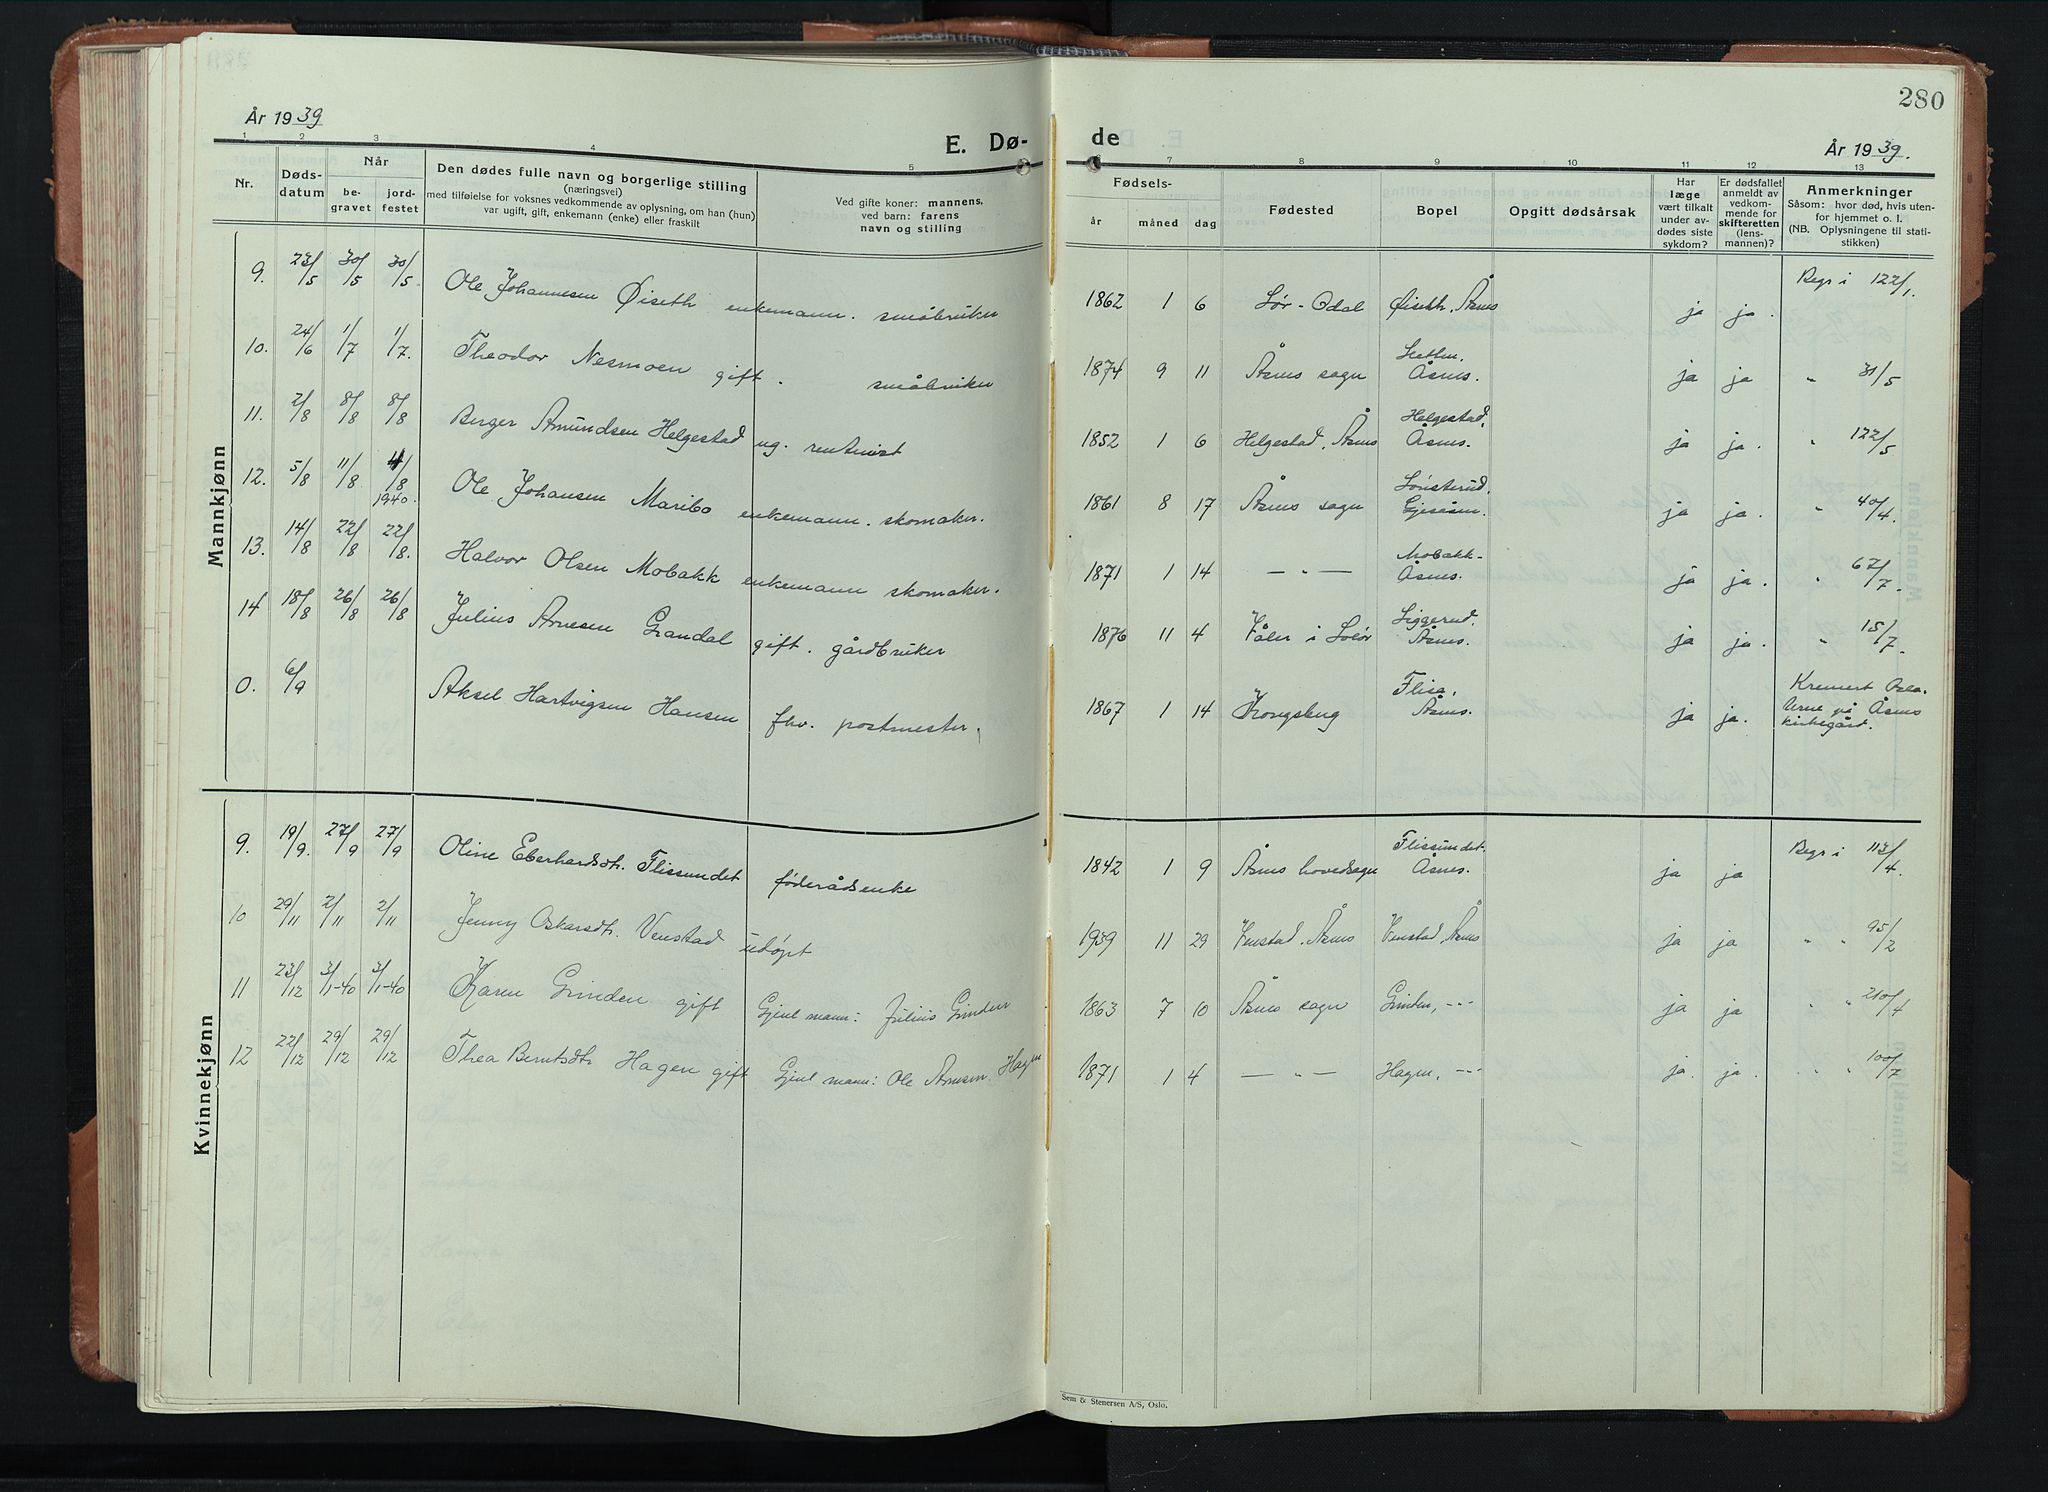 280
År 1939
E. Dø-
de
År 1939.
1 2 3 4 5 6 7 8 9 10 11 12 13
Nr.
Døds-
datum
Når
be-
gravet
jord-
festet
Den dødes fulle navn og borgerlige stilling
(næringsvei)
med tilføielse for voksnes vedkommende av oplysning, om han (hun)
var ugift, gift, enkemann (enke) eller fraskilt
Ved gifte koner: mannens,
ved barn: farens
navn og stilling
Fødsels-
år måned dag
Fødested
Bopel
Opgitt dødsårsak
Har
læge
vært tilkalt
under av-
dødes siste
sykdom?
Er dødsfallet
anmeldt av
vedkom-
mende for
skifteretten
(lens-
mannen)?
Anmerkninger
Såsom: hvor død, hvis uten-
for hjemmet o. l.
(NB. Oplysningene til stati-
stikken)
Mannkjønn
9. 23/5 30/5 30/5. Ole Johannesen Øiseth enkemann. småbruker 1862 1 6 Sør-Odal Øiseth, Åsnes ja ja. Regr i 122/1.
10. 24/6 1/7 1/7. Theodor Nesmoen gift. småbruker 1874 9 11 Åsnes sogn Åsnes. ja ja " 31/5
11. 2/8 8/8 8/8 Berger Amundsen Helgestad ug. rentenist 1852 1 6 Helgestad, Åsnes Helgestad, Åsnes. ja ja. " 122/5
12. 5/8 11/8 11/8 1940. Ole Johansen Maribo enkemann. skomaker. 1861 8 17 Åsnes sogn Sønsterud, Gjesåsen. ja ja. " 40/4.
13. 14/8 22/8 22/8. Halvor Olsen Mobakk enkemann skomaker. 1871 1 14 — " — Mobakk- Åsnes. ja ja. " 67/7.
14 18/8 26/8 26/8 Julius Arnesen Grandal gift. gårdbruker 1876 11 4 Våler i Solør Siggerud, Åsnes. ja ja. " 15/7.
0. 6/9 Aksel Hartvigsen Hansen fhv. postmester. 1867 1 14 Kongsberg Flisa, Åsnes. ja ja. Kremert Oslo. Urne på Åsnes kirkegård.
Kvinnekjønn
9. 19/9. 27/9 27/9 Oline Eberhardsdtr. Flissundet føderådsenke 1842 1 9 Åsnes hovedsogn Flissundet. Åsnes. ja ja Regr i 113/4.
10 29/11 2/11 2/11 Jenny Oskarsdtr. Venstad udøpt 1939 11 29 Venstad, Åsnes Venstad, Åsnes ja ja " " 95/2
11 23/12 3/1-40 3/1-40 Karen Grinden gift Gjenl mann: Julius Grinden 1863 7 10 Åsnes sogn Grinden, -"- ja ja " " 210/4
12 22/12 29/12 29/12 Thea Berntsdtr. Hagen gift Gjenl mann: Ole Arnesen Hagen 1871 1 4 — " — Hagen, -"- ja. ja. " " 100/7
Sem & Stenersen A/S, Oslo.